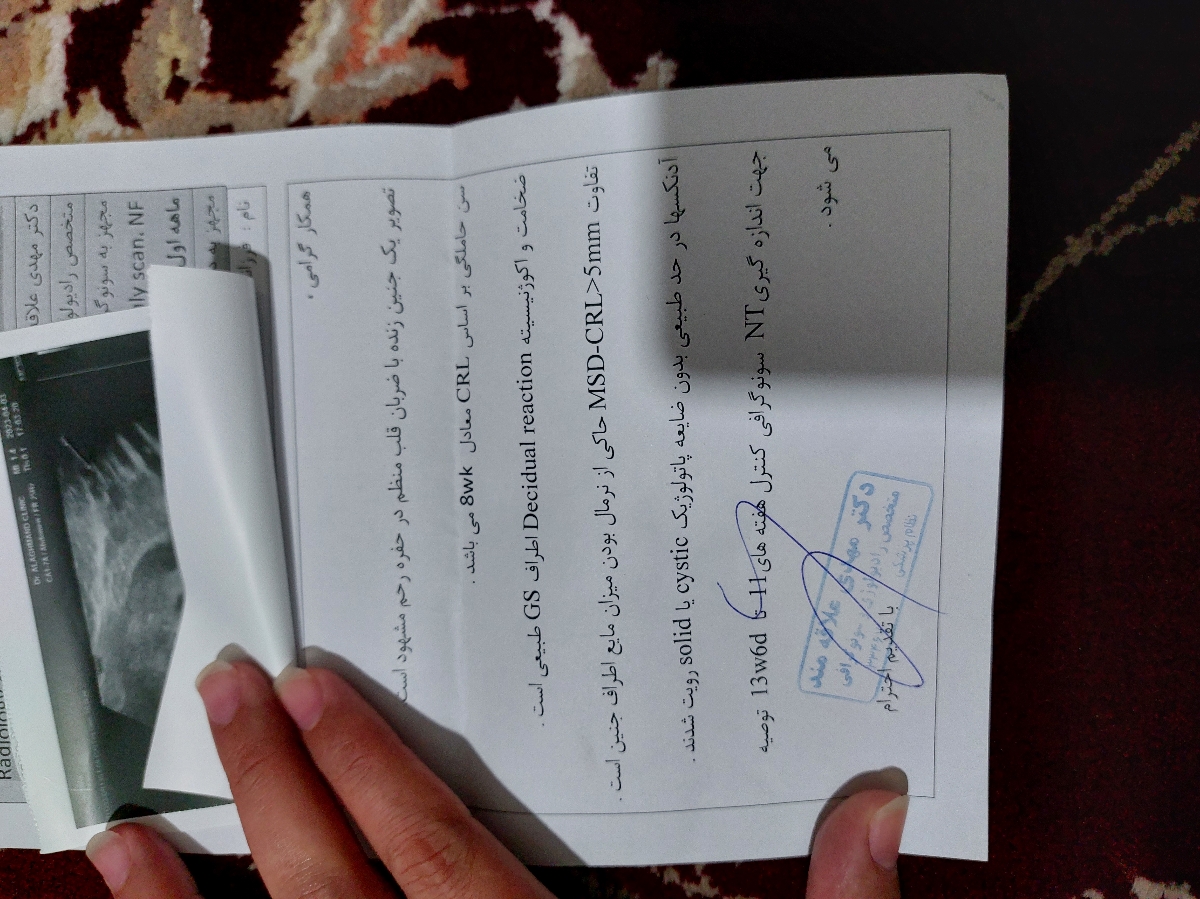 Radiolo
دکتر مهدی علاقه
متخصص رادیولو
مجهز به سونوگ
lly scan. NF
ماهه اول
مجهز به
نام :
Dr ALAGHMAND CLINIC
MI 1.4 2023-04-03
17:03:20
همکار گرامی ،
تصویر یک جنین زنده با ضربان قلب منظم در حفره رحم مشهود است
سن حاملگی بر اساس CRL معادل 8wk می باشد .
ضخامت و اکوژنیسیته Decidual reaction اطراف GS طبیعی است .
تفاوت MSD-CRL>5mm حاکی از نرمال بودن میزان مایع اطراف جنین است .
آدنکسها در حد طبیعی بدون ضایعه پاتولوژیک cystic یا solid رویت شدند .
جهت اندازه گیری NT سونوگرافی کنترل هفته های 11 تا 13w6d توصیه
می شود .
با تقدیم احترام
دکتر مهدی علاقه مند
متخصص رادیولوژی سونوگرافی
نظام پزشکی